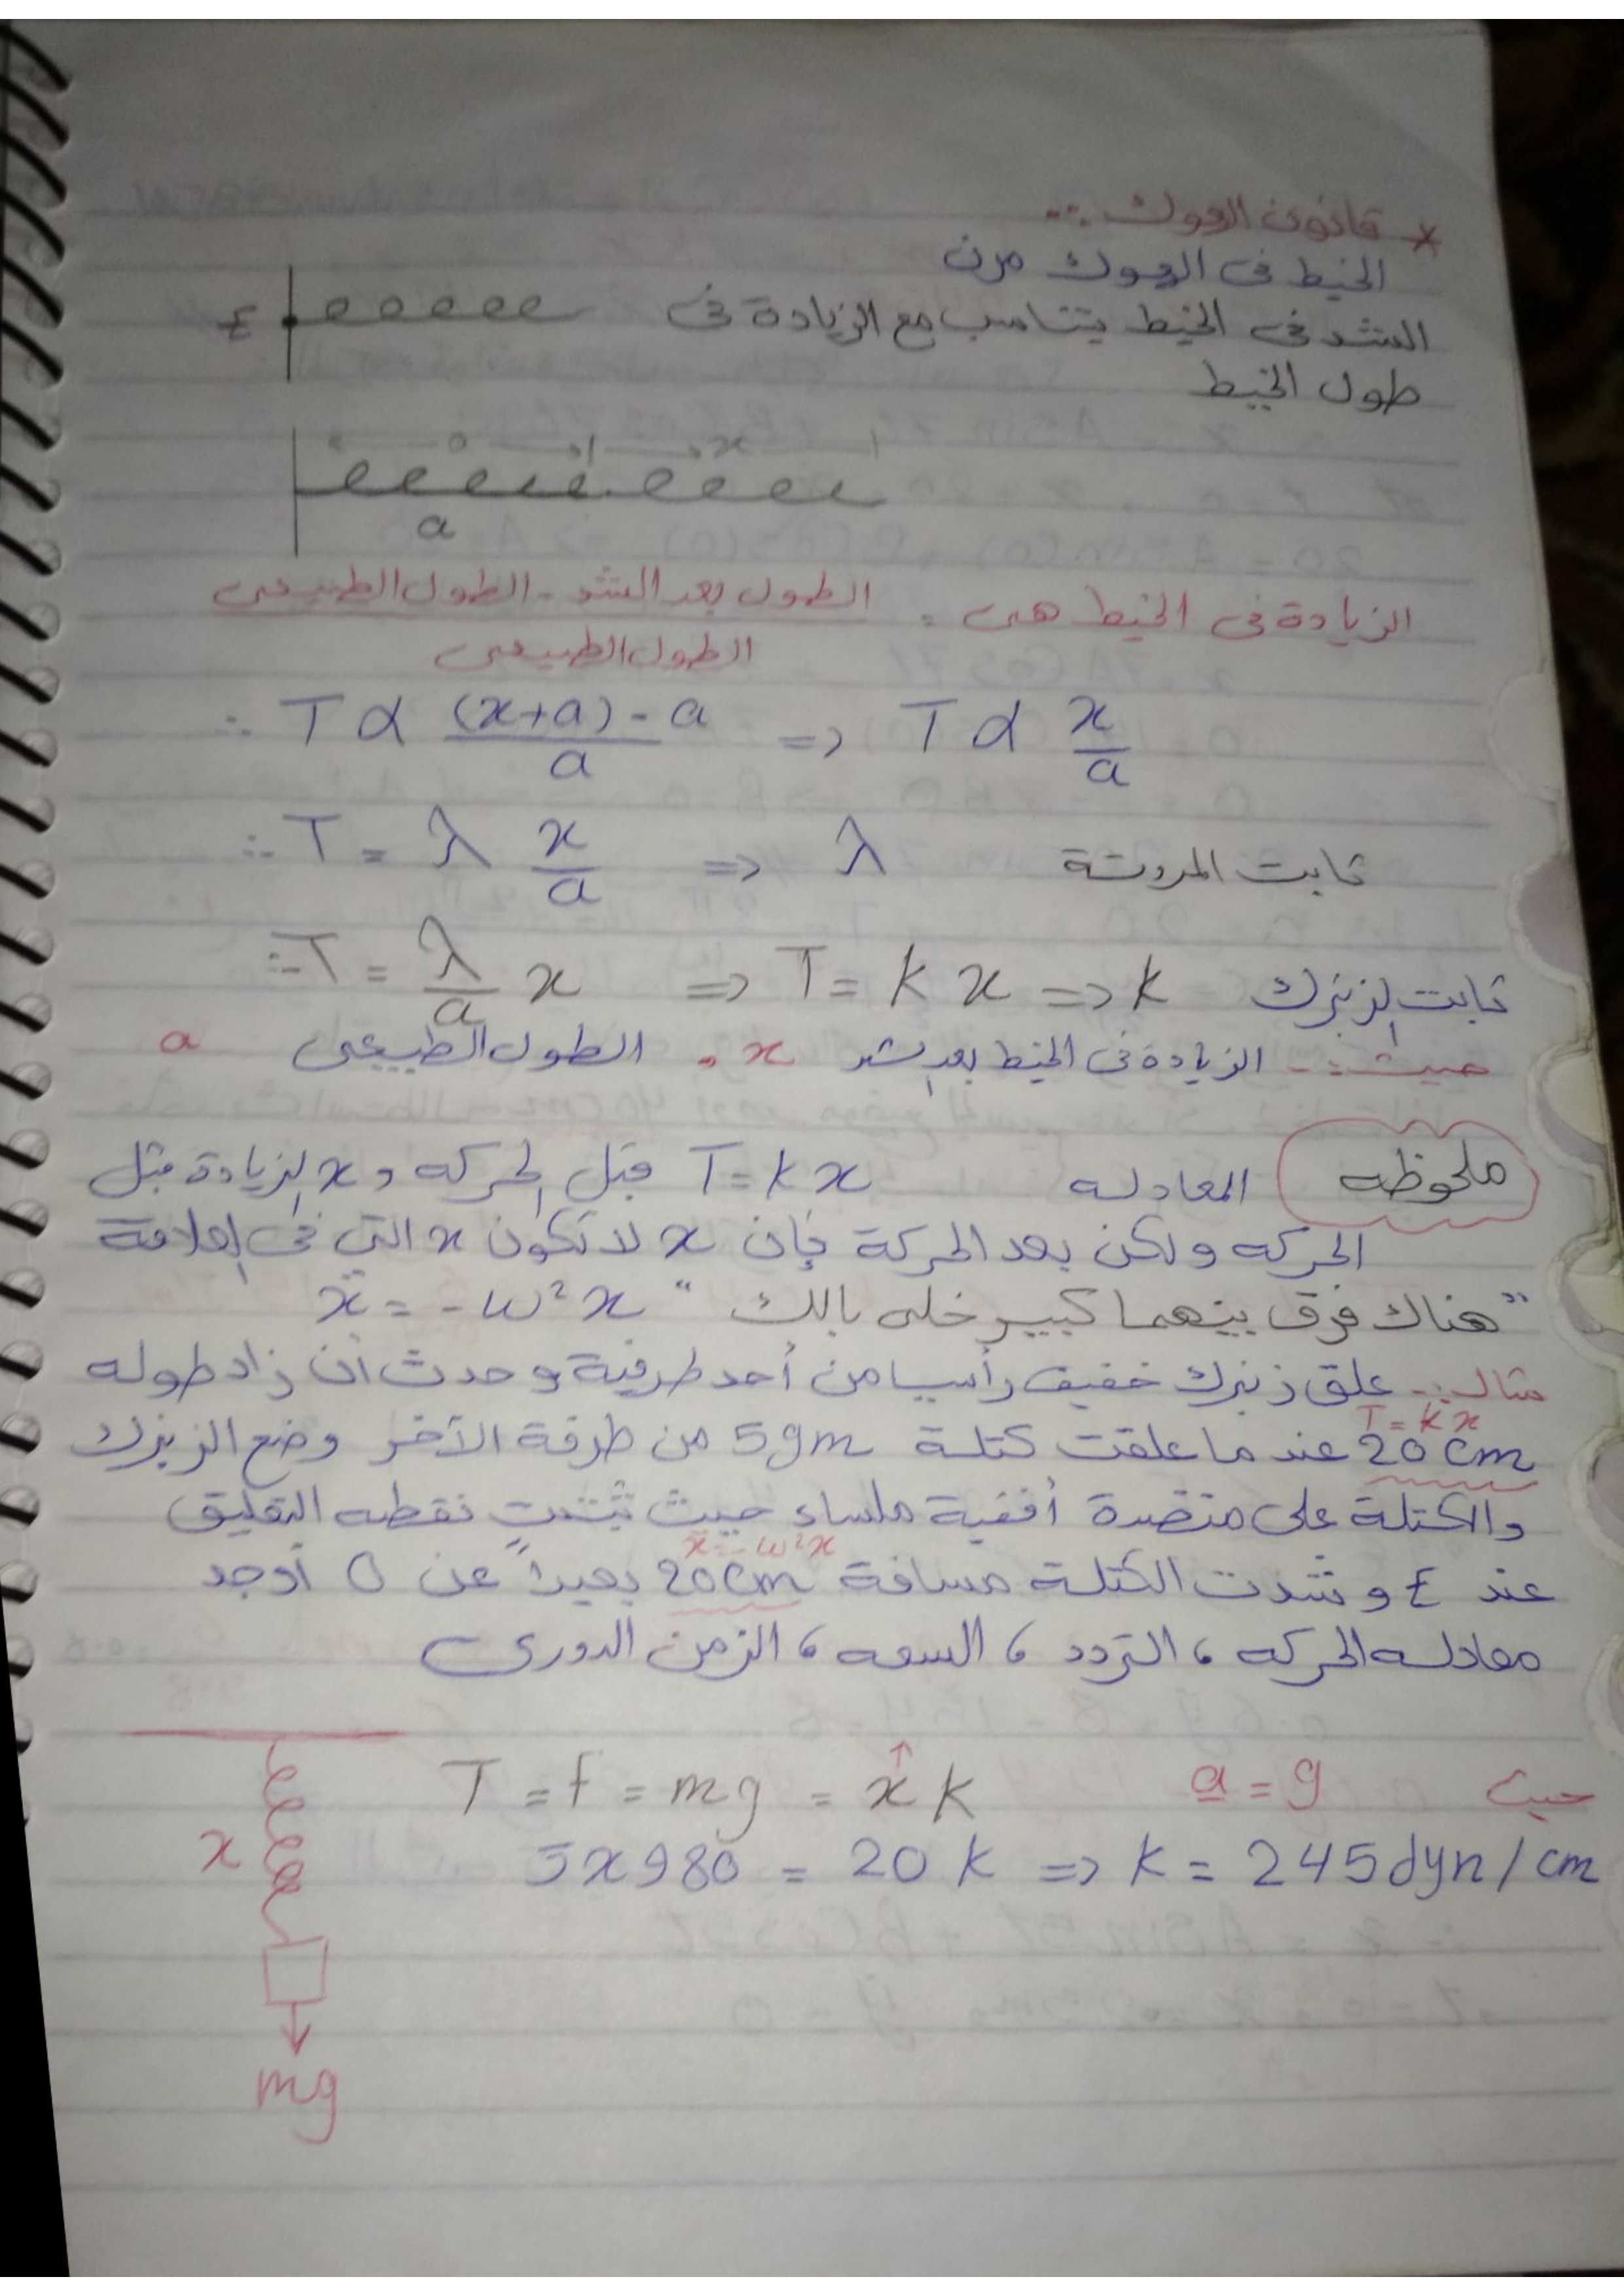 * قانون الهوك :-
الخيط فى الهوك مرن
الشد فى الخيط يتناسب مع الزيادة فى
طول الخيط
ع
a x
a
الزيادة فى الخيط هى = الطول بعد الشد - الطول الطبيعى
الطول الطبيعى
∴ T α (x+a) - a / a => T α x/a
∴ T = λ x/a => λ ثابت المرونة
∴ T = λ/a x => T = k x => k ثابت الزنبرك
حيث :- الزيادة فى الخيط بعد الشد x ، الطول الطبيعى a
ملحوظه المعادله T = k x قبل الحركه و x الزيادة قبل
الحركه ولكن بعد الحركة فإن x لا تكون x التي فى العلاقة
"هناك فرق بينهما كبير خلى بالك" ẍ = - w² x
مثال :- علق زنبرك خفيف رأسيا من أحد طرفية و حدث أن زاد طوله
T = k x
20 cm عند ما علقت كتلة 5gm من طرفة الآخر وضع الزنبرك
والكتلة على منضدة أفقية ملساء حيث ثبتت نقطه التعليق
ẍ = - w² x
عند ع و شدت الكتلة مسافة 20cm بعيداً عن O أوجد
معادله الحركه ، التردد ، السعه ، الزمن الدورى
T = f = mg = x k حيث a = g
5 x 980 = 20 k => k = 245 dyn / cm
x
mg